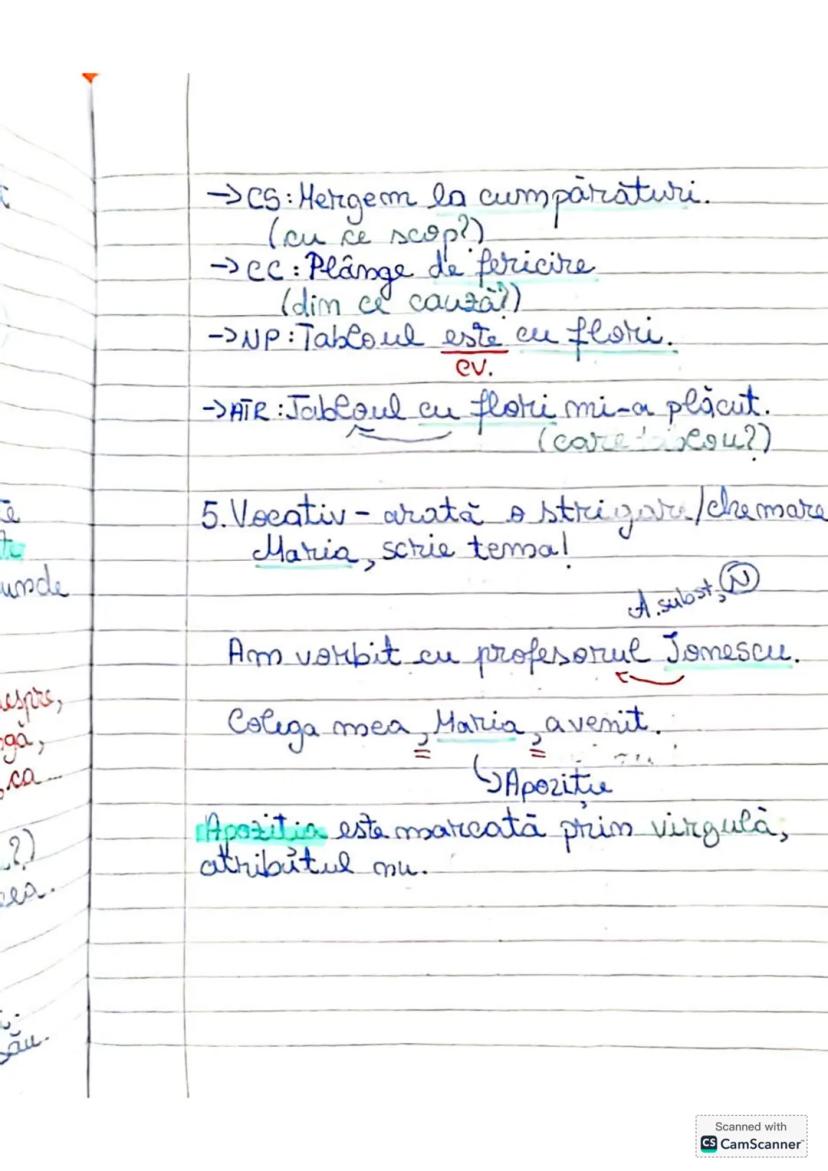 →CS: Mergem la cumpărături.
(cu ce scop?)
→CC: Plânge de fericire
(din ce cauză?)
→NP: Tabloul este cu flori.
cv.
→ATR: Tabloul cu flori mi-a plăcut.
(care tablou?)
5. Vocativ - arată o strigare/chemare
Maria, scrie tema!
A. subst, N
Am vorbit cu profesorul Ionescu.
Colega mea, Maria, a venit.
↳Apoziție
Apoziția este marcată prin virgulă,
atributul nu.
unde
espre,
gă,
ca
?)
ea.
său.
Scanned with
CS CamScanner